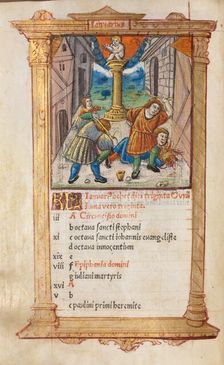 Januarius
KL Januarius habet dies triginta & vnū
Luna vero triginta.
iii A Circuncisio domini
b octava sancti stephani
xi c octava sancti iohannis euangeliste
d octava innocentum
xix e
viii f Epiphania domini
g iuliani martyris
xvi A
v b
c paulini primi heremite